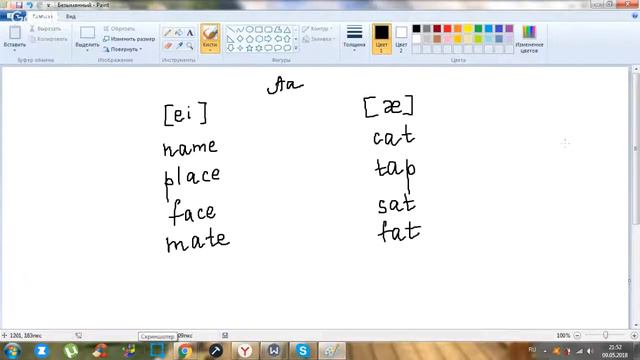 Безымянный - Paint
Вид
Вырезать
Копировать
Вставить
Буфер обмена
Выделить
Обрезать
Изменить размер
Повернуть
Изображение
Инструменты
Кисти
Контур
Заливка
Фигуры
Толщина
Цвет 1
Цвет 2
Изменение цветов
Цвета
Aa
[ei] [æ]
name cat
place tap
face sat
mate fat
1201, 183пкс
100%
Скриншотер
RU
21:52
09.05.2018